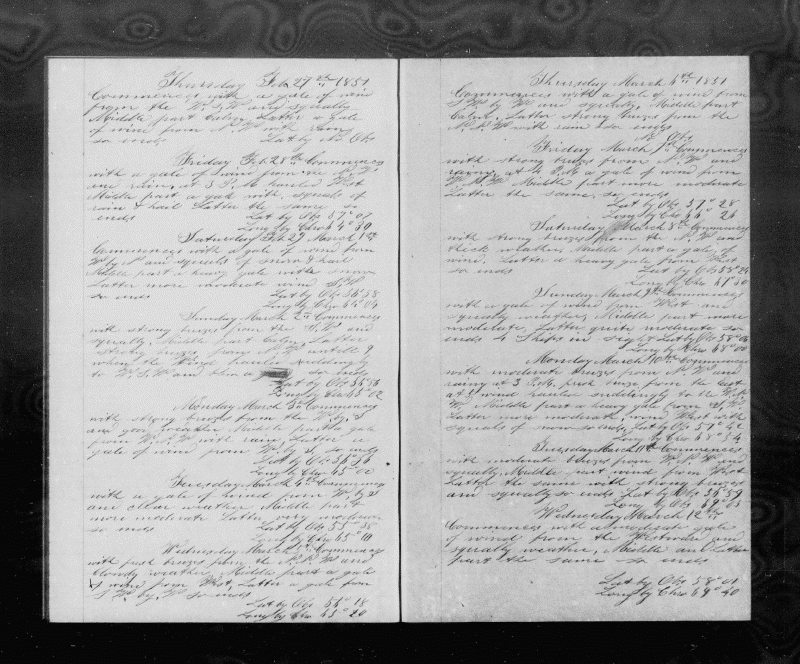 Thursday Feb 27th 1851
Commences with a gale of wind
from the W.S.W and squally
Middle part Calm, Latter a gale
of wind from N.W with rain
so ends Lat by No Obs
Friday Feb 28th Commences
with a gale of wind from the N.W
and rain, at 3 P.M hauled West
Middle part a gale with squals of
rain & hail Latter the same so
ends Lat by Obs 57° 01
Long by Chro 64° 30
Saturday March 1st
Commences with a gale of wind from
W by N and squals of snow & hail
Middle part a heavy gale with snow
Latter more moderate wind S.W
so ends Lat by Obs 56° 58
Long by Chro 64° 04
Sunday March 2d Commences
with strong brezes from the S.W and
squally, Middle part Calm, Latter
strong brezes from N.W untill 9
when the wind hauled suddingly
to W.S.W and blew a so ends
Lat by Obs 56° 56
Long by Chro 65° 02
Monday March 3d Commences
with strong brezes from the W by S
and good weather Middle part a gale
from W.S.W with rain, Latter a
gale of wind from W by S so ends
Lat by Obs 56°
Long by Chro 65° 00
Tuesday March 4th Commences
with a gale of wind from W by S
and clear weather Middle part
more moderate Latter
so ends Lat by Obs 55° 35
Long by Chro 65° 10
Wednesday March 5th Commences
with fresh brezes from the N.W and
cloudy weather, Middle part a gale
of wind from West, Latter a gale from
S.W. by. W so ends
Lat by Obs 56° 18
Long by Chro 65° 20
Thursday March 6th 1851
Commences with a gale of wind from
S.W by W and squally, Middle part
Calm, Latter strong brezes from the
N.N.W with rain so ends
No Obs
Friday March 7th Commences
with strong brezes from N.W and
rainy, at 4 P.M a gale of wind from
W.N.W Middle part more moderate
Latter the same, so ends
Lat by Obs 57° 28
Long by Chro 66° 26
Saturday March 8th Commences
with strong brezes from the N.W and
thick weather Middle part a gale of
wind. Latter a heavy gale from West
so ends Lat by Obs 58° 24
Long by Chro 67° 30
Sunday March 9th Commences
with a gale of wind from West and
squally weather, Middle part more
moderate, Latter quite moderate so
ends 4 Ships in sight Lat by Obs 58° 06
Long by Chro 68° 00
Monday March 10th Commences
with moderate brezes from N.W and
rainy at 3 P.M. fresh breze from the East
at 8 wind hauled suddingly to the W.S.
W, Middle part a heavy gale from S.W
Latter more moderate, wind West with
squals of snow so ends, Lat by Obs 57° 42
Long by Chro 68° 34
Tuesday March 11th Commences
with moderate brezes from W.S.W and
squally, Middle part wind from West
Latter the same with strong brezes
and squally so ends Lat by Obs 57° 59
Long by Chro 69° 05
Wednesday March 12th
Commences with a moderate gale
of wind from the Westward and
squally weather, Middle and Latter
part the same so ends
Lat by Obs 58° 01
Long by Chro 69° 40